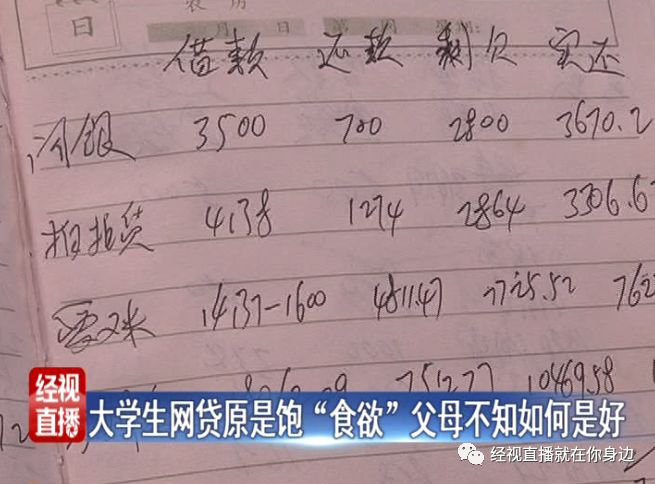 日
月 日
借款 还款 剩欠 实还
3500 700 2800 3670.2
拍拍贷 4138 1274 2864 3306.6
14137-1600 4811.47 7725.52 762
751277 10469.58
经视
直播
大学生网贷原是饱“食欲”父母不知如何是好
经视直播就在你身边